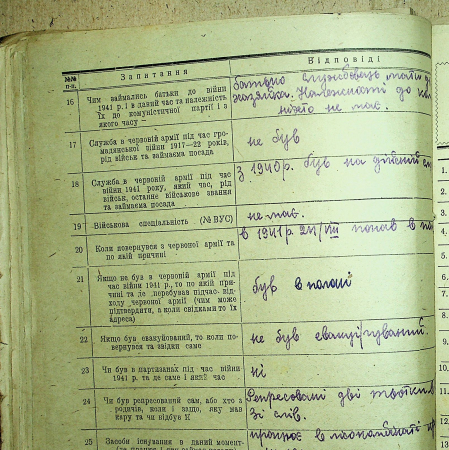 №№ п-п. Запитання Відповіді
16 Чим займались батьки до війни
1941 р. і в даний час та належність
їх до комуністичної партії і з
якого часу —
батько службовець, мати до
хазяйка. Належності до
ніхто не має.
17 Служба в червоній армії під час гро-
мадянської війни 1917—22 років,
рід військ та займаєма посада
не був
18 Служба в червоній армії під час
війни 1941 року, який час, рід
військ, останнє військове звання
та займаєма посада
з 1940 р. був на дійсній
19 Військова спеціальність (№ ВУС)
не має.
20 Коли повернувся з червоної армії та
по якій причині
в 1941 р 24/VIII попав в по
21 Якщо не був в червоній армії під
час війни 1941 р., то по якій при-
чині та де перебував підчас від-
ходу червоної армії (чим може
підтвердити, а коли свідками то їх
адреса)
був в полоні
22 Якщо був евакуйований, то коли по-
вернувся та звідки саме
не був евакуйований.
23 Чи був в партизанах під час війни
1941 р. та де саме і який час
ні
24 Чи був репресованим сам, або хто з
родичів, коли і защо, яку мав
кару та чи відбув її
Репресовані дві
Зі слів.
25 Засоби існування в даний момент
працює в
1.
2.
3.
4.
5.
6.
7.
8.
9.
10.
11.
12.
13.